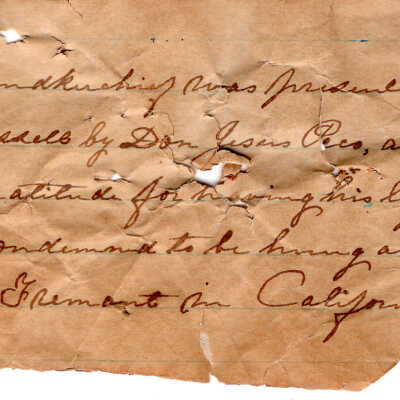 ndkerchief was presen
ssell by Don Jesus Pico, a
atitude for having his l
ondemnd to be hung a
Fremont in Californ